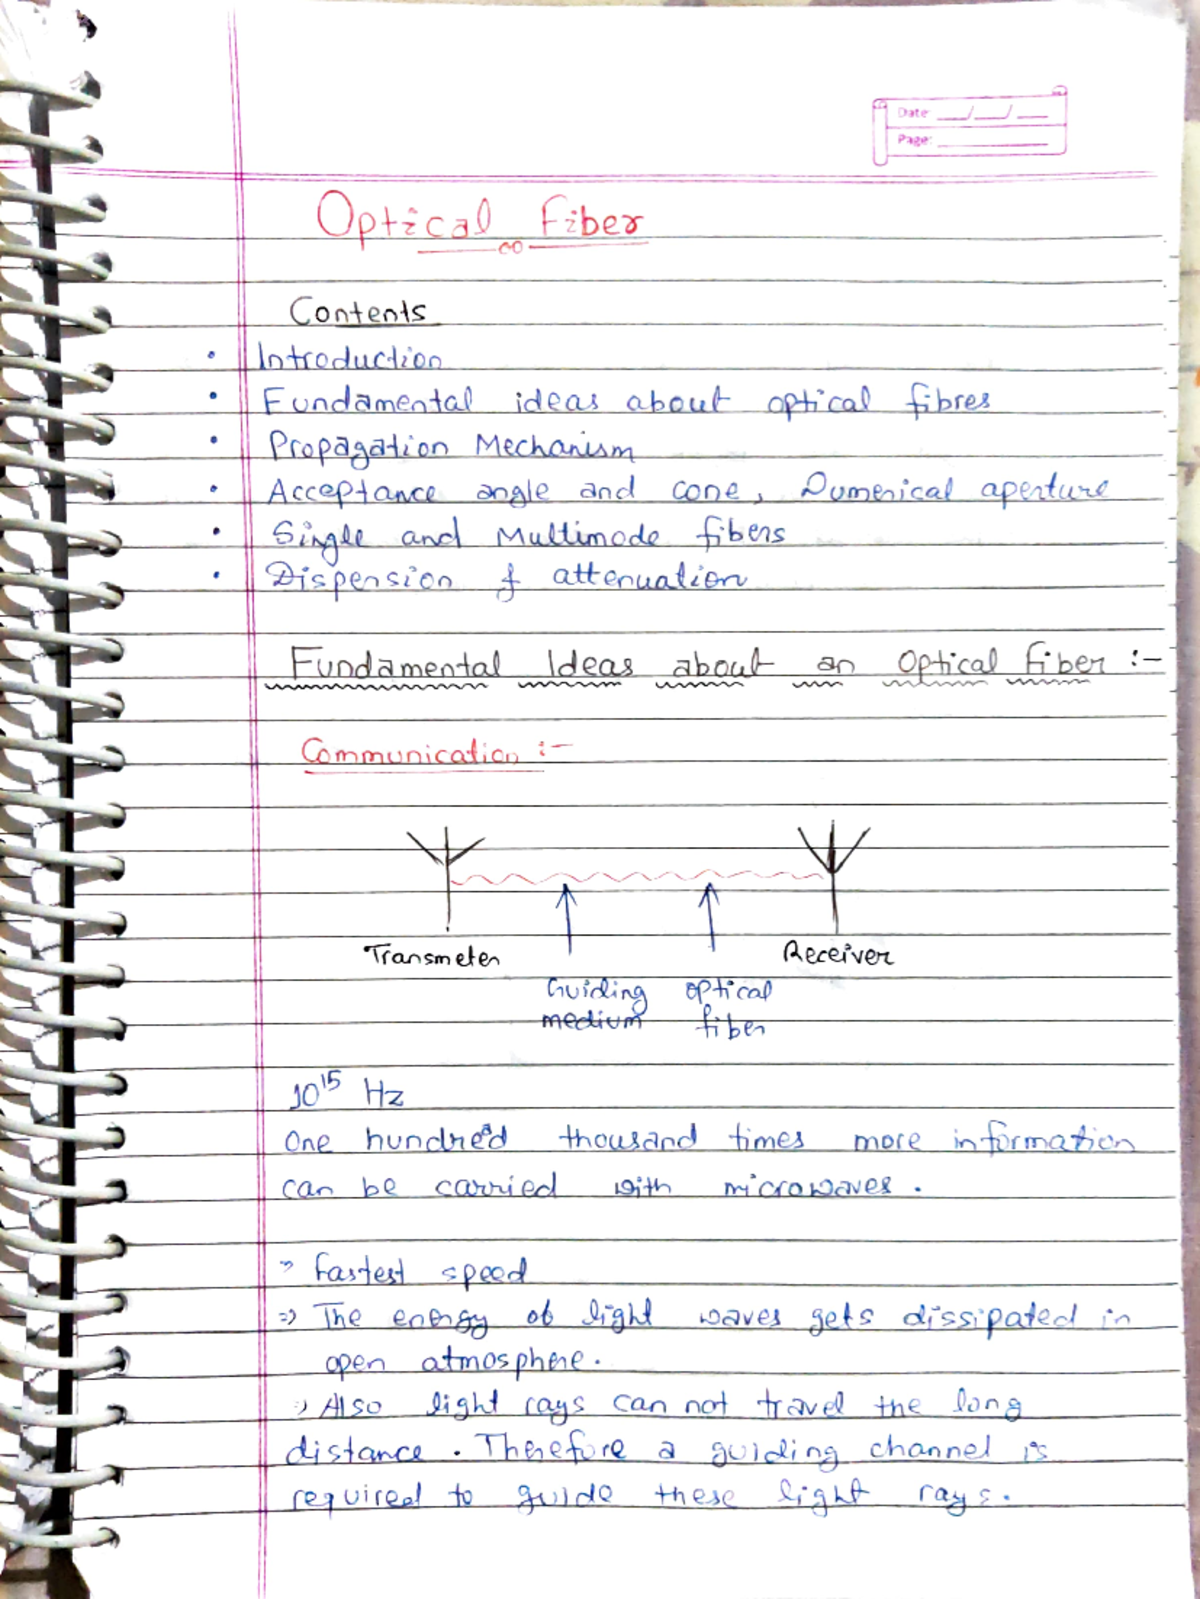 Date: __/__/__
Page: ________
Optical Fiber
Contents
• Introduction
• Fundamental ideas about optical fibres
• Propagation Mechanism
• Acceptance angle and cone, Numerical aperture
• Single and Multimode fibers
• Dispersion & attenuation
Fundamental Ideas about an Optical Fiber :-
Communication :-
Transmeter Receiver
Guiding optical
medium fiber
10¹⁵ Hz
One hundred thousand times more information
can be carried with microwaves.
⇒ fastest speed
⇒ The energy of light waves gets dissipated in
open atmosphere.
⇒ Also light rays can not travel the long
distance. Therefore a guiding channel is
required to guide these light rays.